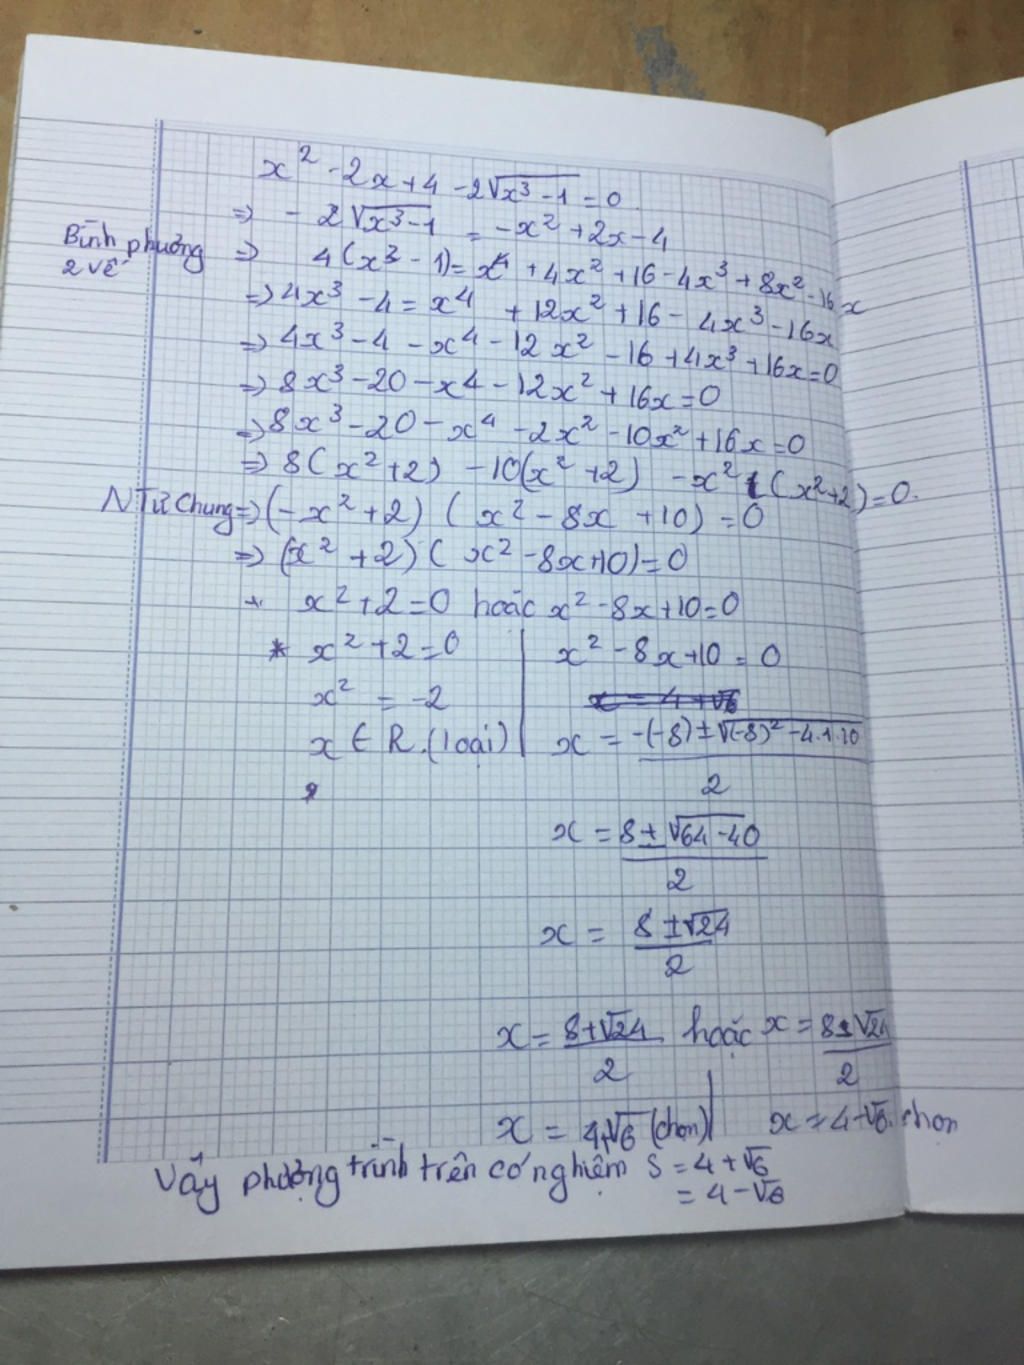 x² - 2x + 4 - 2√(x³ - 1) = 0
=> - 2√(x³ - 1) = -x² + 2x - 4
Bình phương 2 vế => 4(x³ - 1) = x⁴ + 4x² + 16 - 4x³ + 8x² - 16x
=> 4x³ - 4 = x⁴ + 12x² + 16 - 4x³ - 16x
=> 4x³ - 4 - x⁴ - 12x² - 16 + 4x³ + 16x = 0
=> 8x³ - 20 - x⁴ - 12x² + 16x = 0
=> 8x³ - 20 - x⁴ - 2x² - 10x² + 16x = 0
=> 8(x² + 2) - 10(x² + 2) - x² (x² + 2) = 0.
NTử Chung => (-x² + 2) (x² - 8x + 10) = 0
=> (x² + 2) (x² - 8x + 10) = 0
+ x² + 2 = 0 hoặc x² - 8x + 10 = 0
* x² + 2 = 0
x² = -2
x ∈ R. (loại)
x² - 8x + 10 = 0
x = (-(-8) ± √((-8)² - 4.1.10))/2
x = (8 ± √(64 - 40))/2
x = (8 ± √24)/2
x = (8 + √24)/2 hoặc x = (8 ± √24)/2
x = 4+√6 (chọn) | x = 4-√6. chọn
Vậy phương trình trên có nghiệm S = 4 + √6
= 4 - √6